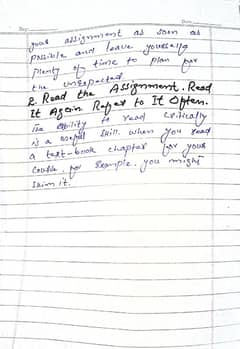 Day:
Date:
your assignment as soon as
possible and leave yourself
plenty of time to plan for
the unexpected
2. Read the Assignment. Read
It Again Refer to It Often.
The ability to read critically
is a useful skill. when you read
a text-book chapter for your
Course, for Example, you might
skim it.